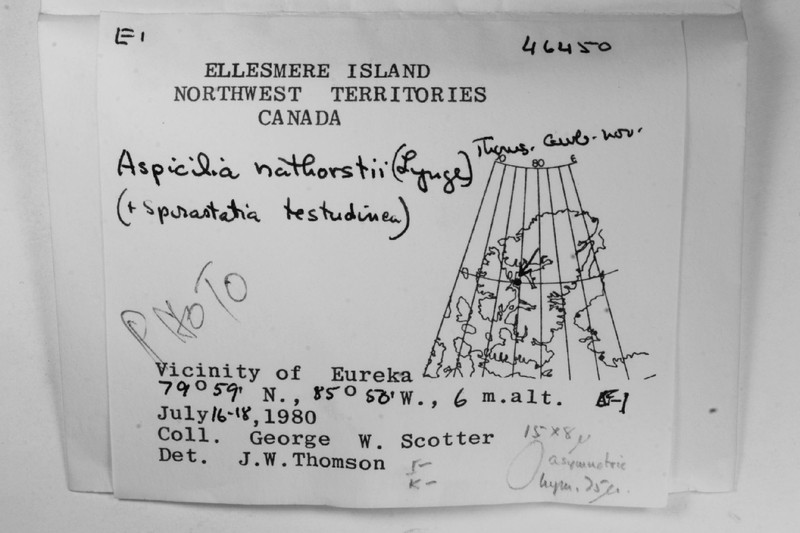 E1 46450
ELLESMERE ISLAND
NORTHWEST TERRITORIES
CANADA
Aspicilia nathorstii (Lynge) Thoms. comb. nov.
80
(+ Sporastatia testudinea)
PHOTO
Vicinity of Eureka
79° 59' N., 85° 50' W., 6 m.alt. E-1
July 16-18, 1980
Coll. George W. Scotter
Det. J.W.Thomson
I-
K-
15 x 8 μ
asymmetric
hym. 75μ.